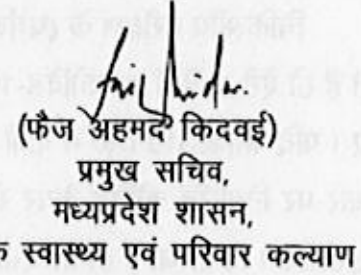 (फैज अहमद किदवई)
प्रमुख सचिव,
मध्यप्रदेश शासन,
स्वास्थ्य एवं परिवार कल्याण